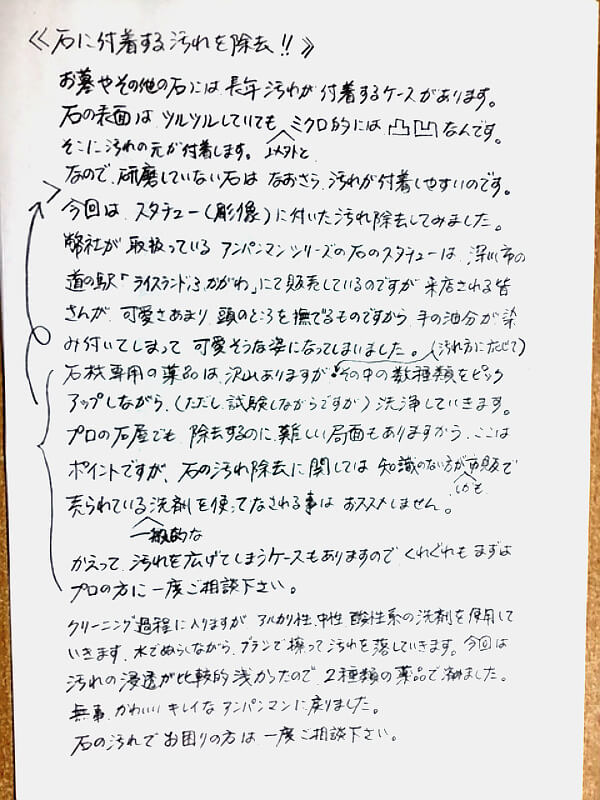 ≪石に付着する汚れを除去!!≫
お墓やその他の石には長年汚れが付着するケースがあります。
石の表面はツルツルしていても ミクロ的には凸凹なんです。
そこに汚れの元が付着します。
なので、研磨していない石は なおさら、汚れが付着しやすいのです。
今回は、スタチュー(彫像)に付いた汚れ除去してみました。
弊社が取扱っている アンパンマンシリーズの石のスタチューは、深川市の
道の駅「ライスランドふかがわ」にて販売しているのですが 来店される皆
さんが、可愛さあまり 頭のところを撫でるものですから、手の油分が染
み付いてしまって 可愛そうな姿になってしまいました。
(汚れ方に応じて)
石材専用の薬品は、沢山ありますが その中の数種類をピック
アップしながら、(ただし、試験しながらですが)洗浄していきます。
プロの石屋でも 除去するのに難しい局面もありますから、ここは
ポイントですが、石の汚れ除去に関しては 知識のない方が 市販で
しかも
売られている洗剤を使ってなされる事は おススメしません。
一般的な
かえって、汚れを広げてしまうケースもありますので くれぐれも まずは
プロの方に一度ご相談下さい。
クリーニング過程に入りますが アルカリ性、中性 酸性系の洗剤を使用して
いきます。水でぬらしながら、ブラシで擦って汚れを落していきます。今回は
汚れの浸透が比較的浅かったので、2種類の薬品で済みました。
無事、かわいい キレイな アンパンマンに戻りました。
石の汚れで お困りの方は 一度ご相談下さい。